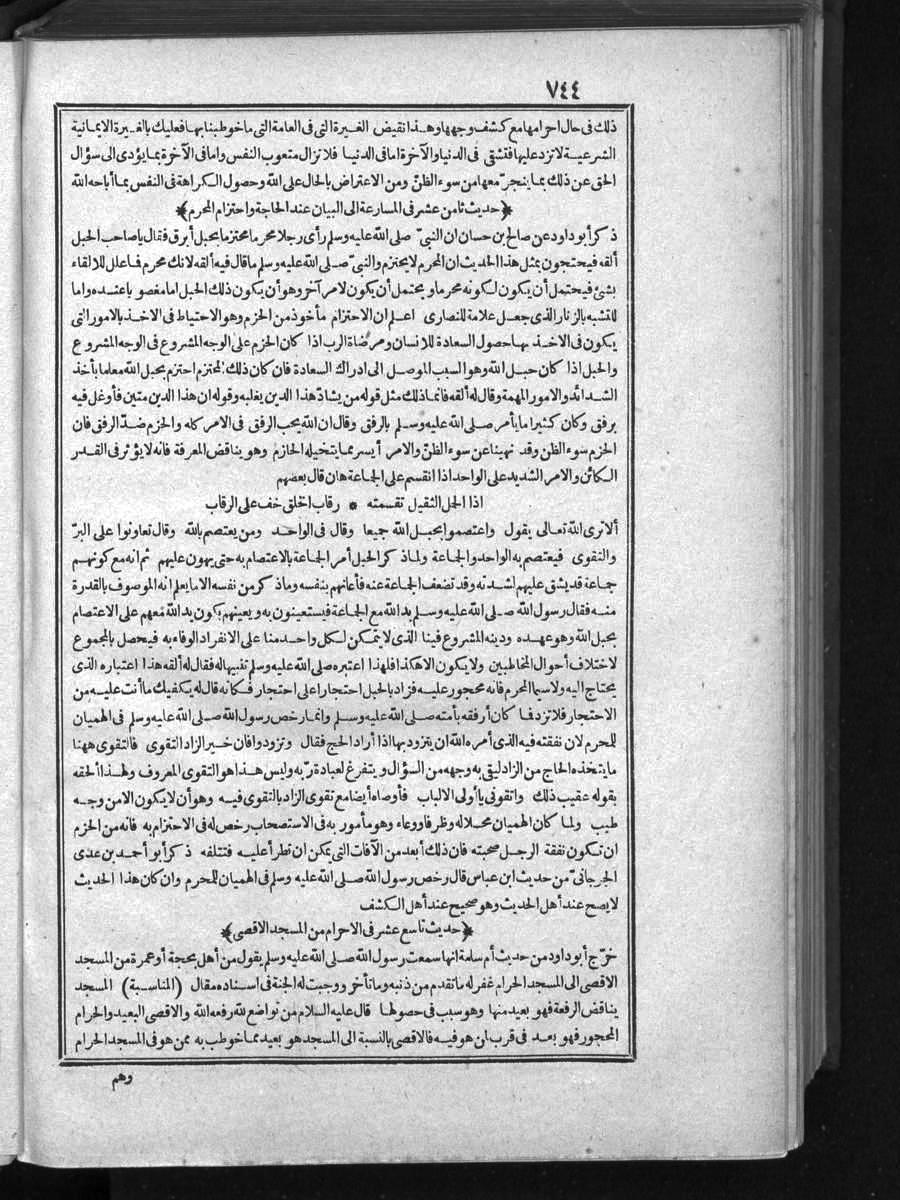 ٧٤٤
ذلك فى حال احرامها مع كشف وجهها وهذا نقيض الغيرة التى فى العامة التى ما خوطبنا بها فعليك بالغيرة الايمانية
الشرعية لا تزد عليها فتشقى فى الدنيا والآخرة اما فى الدنيا فلا تزال متعوب النفس واما فى الآخرة بما يؤدى الى سؤال
الحق عن ذلك بما ينجر معها من سوء الظن ومن الاعتراض بالحال على الله وحصول الكراهة فى النفس بما أباحه الله
﴿حديث ثامن عشر فى المسارعة الى البيان عند الحاجة واحتزام المحرم﴾
ذكر أبو داود عن صالح بن حسان ان النبىّ صلى الله عليه وسلم رأى رجلا محرما محتزما بحبل أبرق فقال يا صاحب الحبل
ألقه فيحتجون بمثل هذا الحديث ان المحرم لا يحتزم والنبىّ صلى الله عليه وسلم ما قال فيه ألقه لانك محرم فاعلل للالقاء
بشئ فيحتمل أن يكون لكونه محرما ويحتمل أن يكون لامر آخر وهو أن يكون ذلك الحبل اما مغصوبا عنده واما
للتشبه بالزنار الذى جعل علامة للنصارى اعلم ان الاحتزام مأخوذ من الحزم وهو الاحتياط فى الاخذ بالامور التى
يكون فى الاخذ بها حصول السعادة للانسان ومرضاة الرب اذا كان الحزم على الوجه المشروع فى الوجه المشروع
والحبل اذا كان حبل الله وهو السبب الموصل الى ادراك السعادة فان كان ذلك المحتزم احتزم بحبل الله معلما بأخذ
الشدائد والامور المهمة وقال له ألقه فانما ذلك مثل قوله من يشادّ هذا الدين يغلبه وقوله ان هذا الدين متين فأوغل فيه
برفق وكان كثيرا ما يأمر صلى الله عليه وسلم بالرفق وقال ان الله يحب الرفق فى الامر كله والحزم ضدّ الرفق فان
الحزم سوء الظن وقد نهينا عن سوء الظنّ والامر أيسر مما يتخيله الحازم وهو يناقض المعرفة فانه لا يؤثر فى القدر
الكائن والامر الشديد على الواحد اذا انقسم على الجماعة هان قال بعضهم
اذا الحمل الثقيل تقسمته * رقاب الخلق خف على الرقاب
ألا ترى الله تعالى يقول واعتصموا بحبل الله جميعا وقال فى الواحد ومن يعتصم بالله وقال تعاونوا على البرّ
والتقوى فيعتصم به الواحد والجماعة ولما ذكر الحبل أمر الجماعة بالاعتصام به حتى يهون عليهم ثم انه مع كونهم
جماعة قد يشق عليهم لشدته وقد تضعف الجماعة عنه فأعانهم بنفسه وما ذكر من نفسه الا ما يعلم انه الموصوف بالقدرة
منه فقال رسول الله صلى الله عليه وسلم يد الله مع الجماعة فيستعينون به ويعينهم بكون يد الله معهم على الاعتصام
بحبل الله وهو عهده ودينه المشروع فينا الذى لا يتمكن لكل واحد منا على الانفراد الوفاء به فيحصل بالمجموع
لاختلاف أحوال المخاطبين ولا يكون الا هكذا فلهذا اعتبره صلى الله عليه وسلم تنبيها له فقال له ألقه هذا اعتباره الذى
يحتاج اليه ولا سيما المحرم فانه محجور عليه فزاد بالحبل احتجارا على احتجار فكانه قال له يكفيك ما أنت عليه من
الاحتجار فلا تزد فما كان أرفقه بأمته صلى الله عليه وسلم وانما رخص رسول الله صلى الله عليه وسلم فى الهميان
للمحرم لان نفقته فيه الذى أمره الله ان يتزود بها اذا أراد الحج فقال وتزودوا فان خير الزاد التقوى فالتقوى ههنا
ما يتخذه الحاج من الزاد ليقى به وجهه من السؤال ويتفرغ لعبادة ربه وليس هذا هو التقوى المعروف ولهذا ألحقه
بقوله عقيب ذلك واتقونى يا أولى الالباب فأوصاه أيضا مع تقوى الزاد بالتقوى فيه وهو أن لا يكون الا من وجه
طيب ولما كان الهميان محلا له وظرفا ووعاء وهو مأمور به فى الاستصحاب رخص له فى الاحتزام به فانه من الحزم
ان تكون نفقة الرجل صحبته فان ذلك أبعد من الآفات التى يمكن ان تطرأ عليه فتتلفه ذكر أبو أحمد بن عدى
الجرجانىّ من حديث ابن عباس قال رخص رسول الله صلى الله عليه وسلم فى الهميان للمحرم وان كان هذا الحديث
لا يصح عند أهل الحديث وهو صحيح عند أهل الكشف
﴿حديث تاسع عشر فى الاحرام من المسجد الاقصى﴾
خرّج أبو داود من حديث أم سلمة انها سمعت رسول الله صلى الله عليه وسلم يقول من أهل بحجة أو عمرة من المسجد
الاقصى الى المسجد الحرام غفر له ما تقدم من ذنبه وما تأخر ووجبت له الجنة فى اسناده مقال (المناسبة) المسجد
يناقض الرفعة فهو بعيد منها وهو سبب فى حصولها قال عليه السلام من تواضع لله رفعه الله والاقصى البعيد والحرام
المحجور فهو بعد فى قرب لمن هو فيه فالاقصى بالنسبة الى المسجد هو بعيد مما خوطب به ممن هو فى المسجد الحرام
وهم